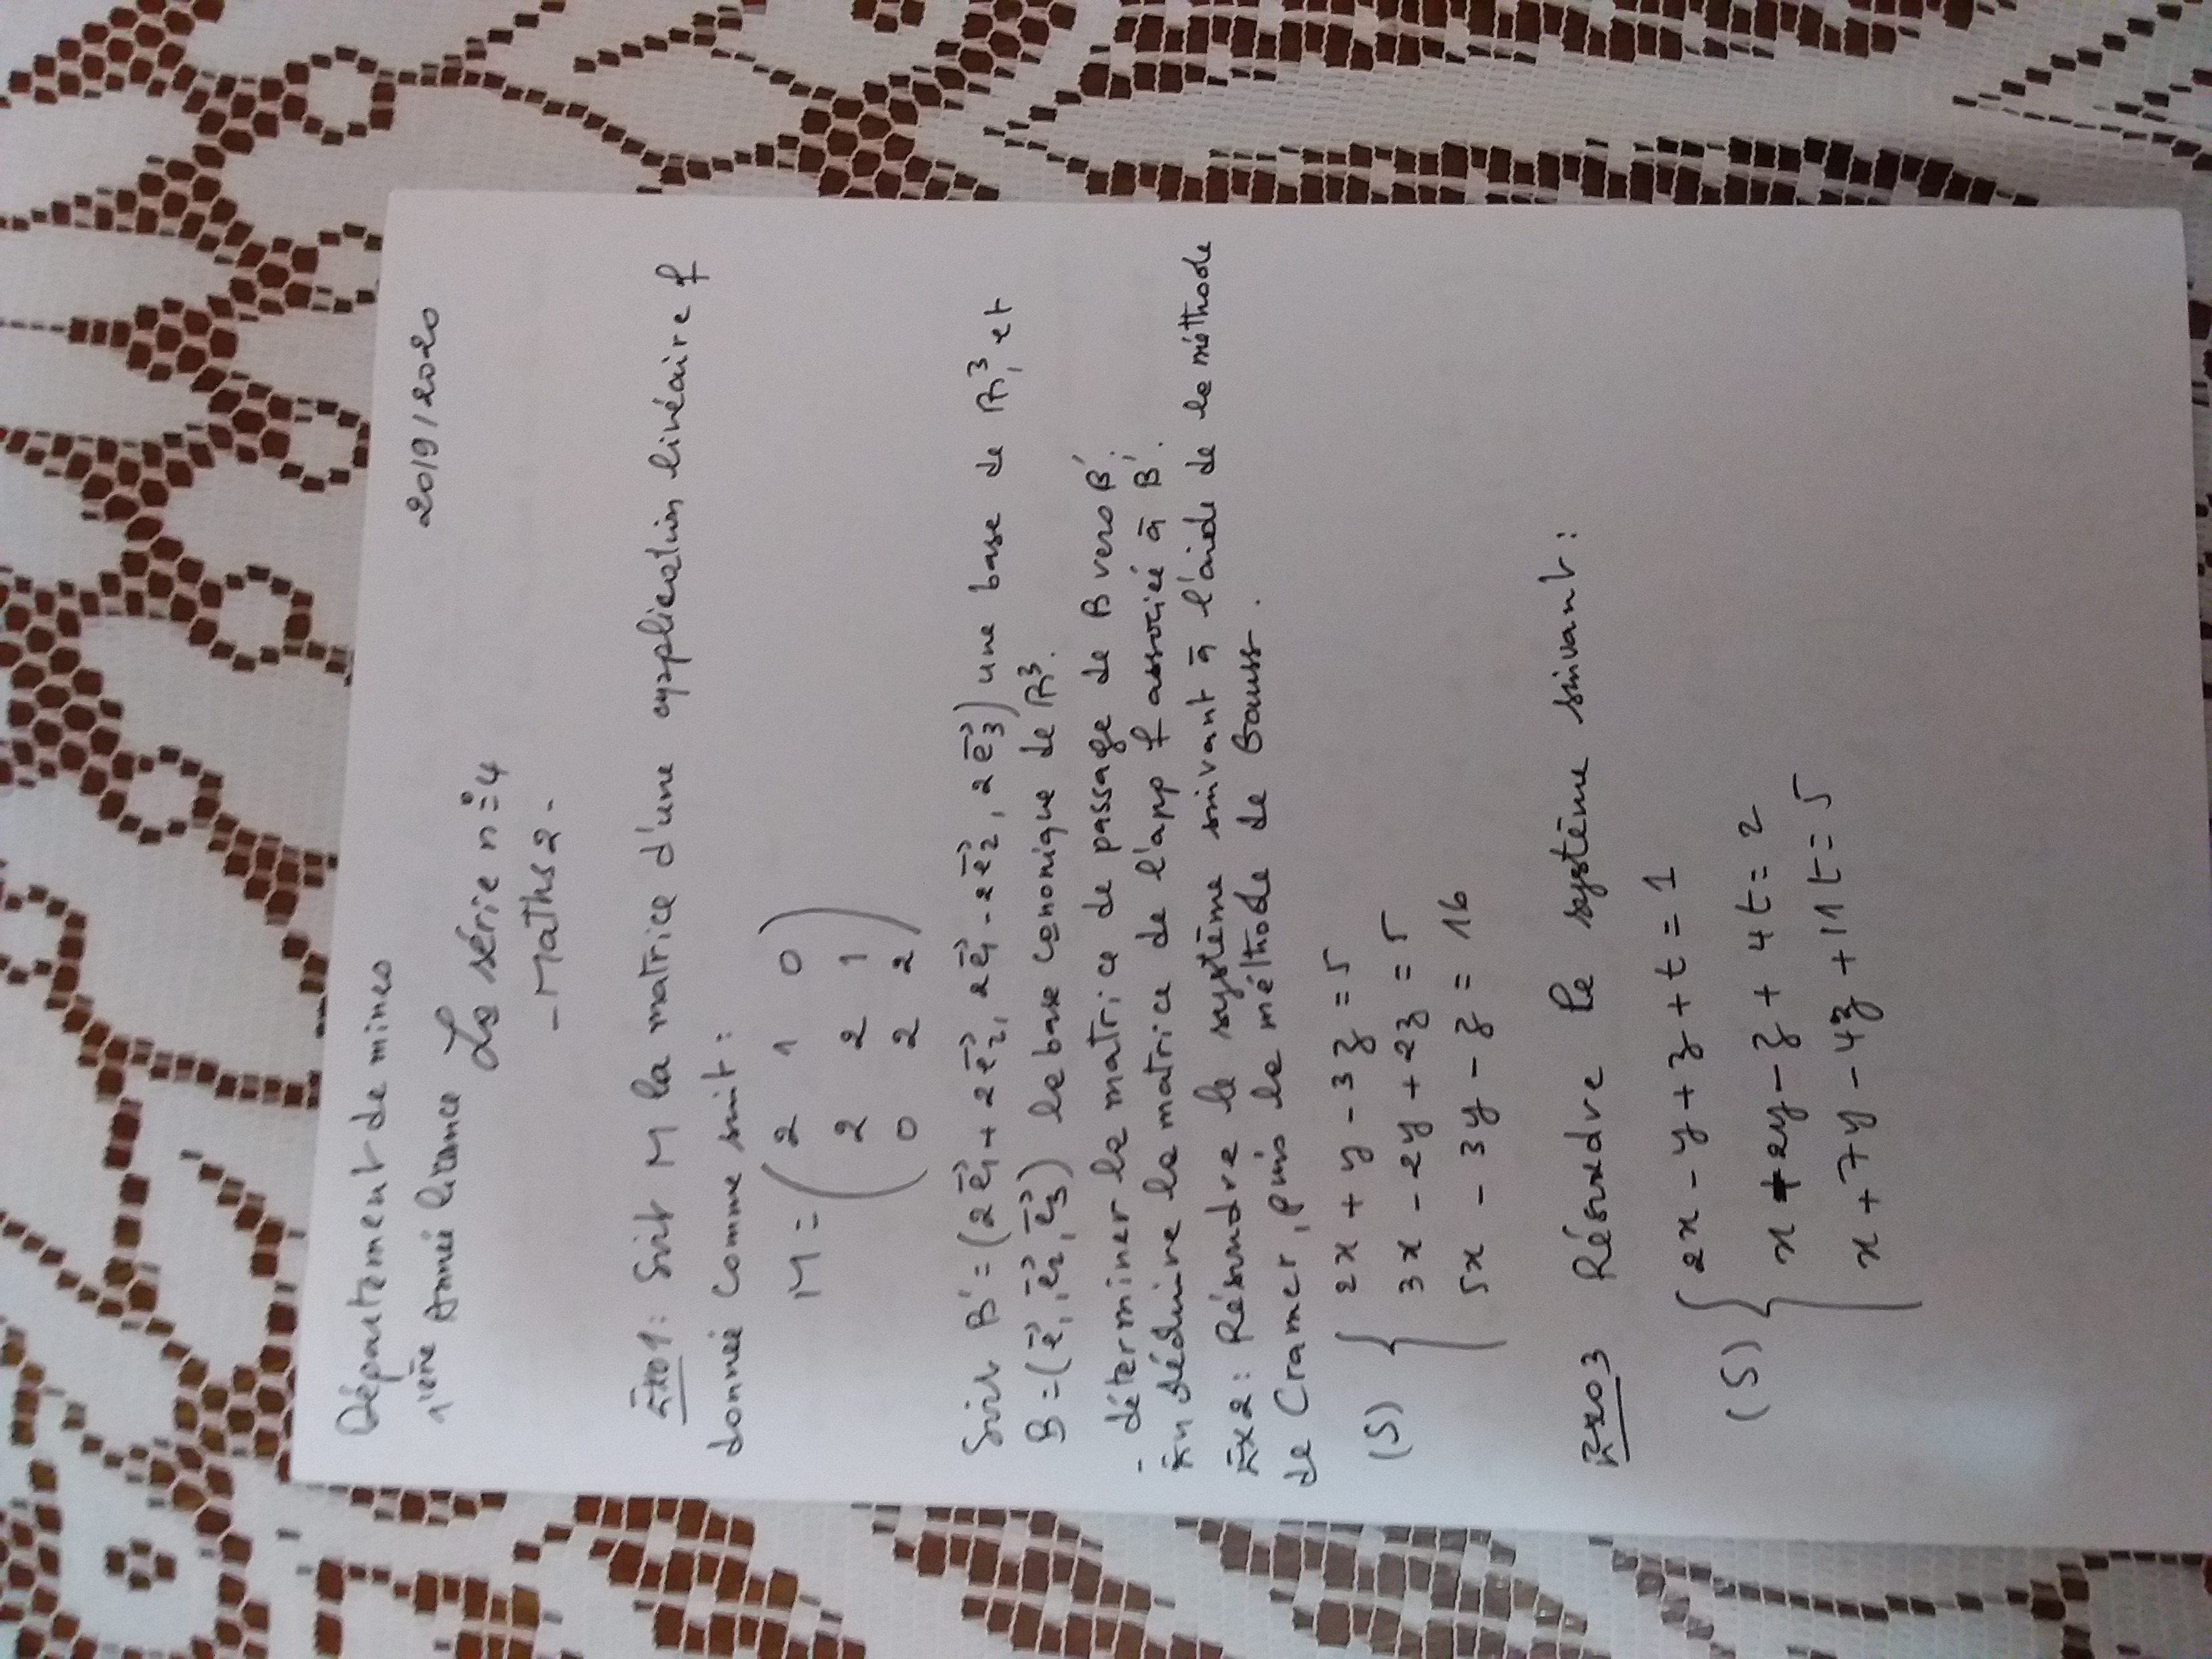 Département de mines
1ière Année licence 2019/2020
La série n°=4
- Maths 2 -
Exo1: Soit M la matrice d'une application linéaire f
donnée comme suit :
M = ( 2 1 0
2 2 1
0 2 2 )
Soit B' = (2e⃗1 + 2e⃗2, 2e⃗1 - 2e⃗2, 2e⃗3) une base de R³, et
B = (e⃗1, e⃗2, e⃗3) la base cononique de R³.
- déterminer la matrice de passage de B vers B'.
En déduire la matrice de l'app f associeé à B'.
Ex2: Résoudre le système suivant à l'aide de la méthode
de Cramer, puis la méthode de Gauss.
(S) { 2x + y - 3z = 5
3x - 2y + 2z = 5
5x - 3y - z = 16
Exo3 Résoudre le système suivant :
(S) { 2x - y + z + t = 1
x + 2y - z + 4t = 2
x + 7y - 4z + 11t = 5